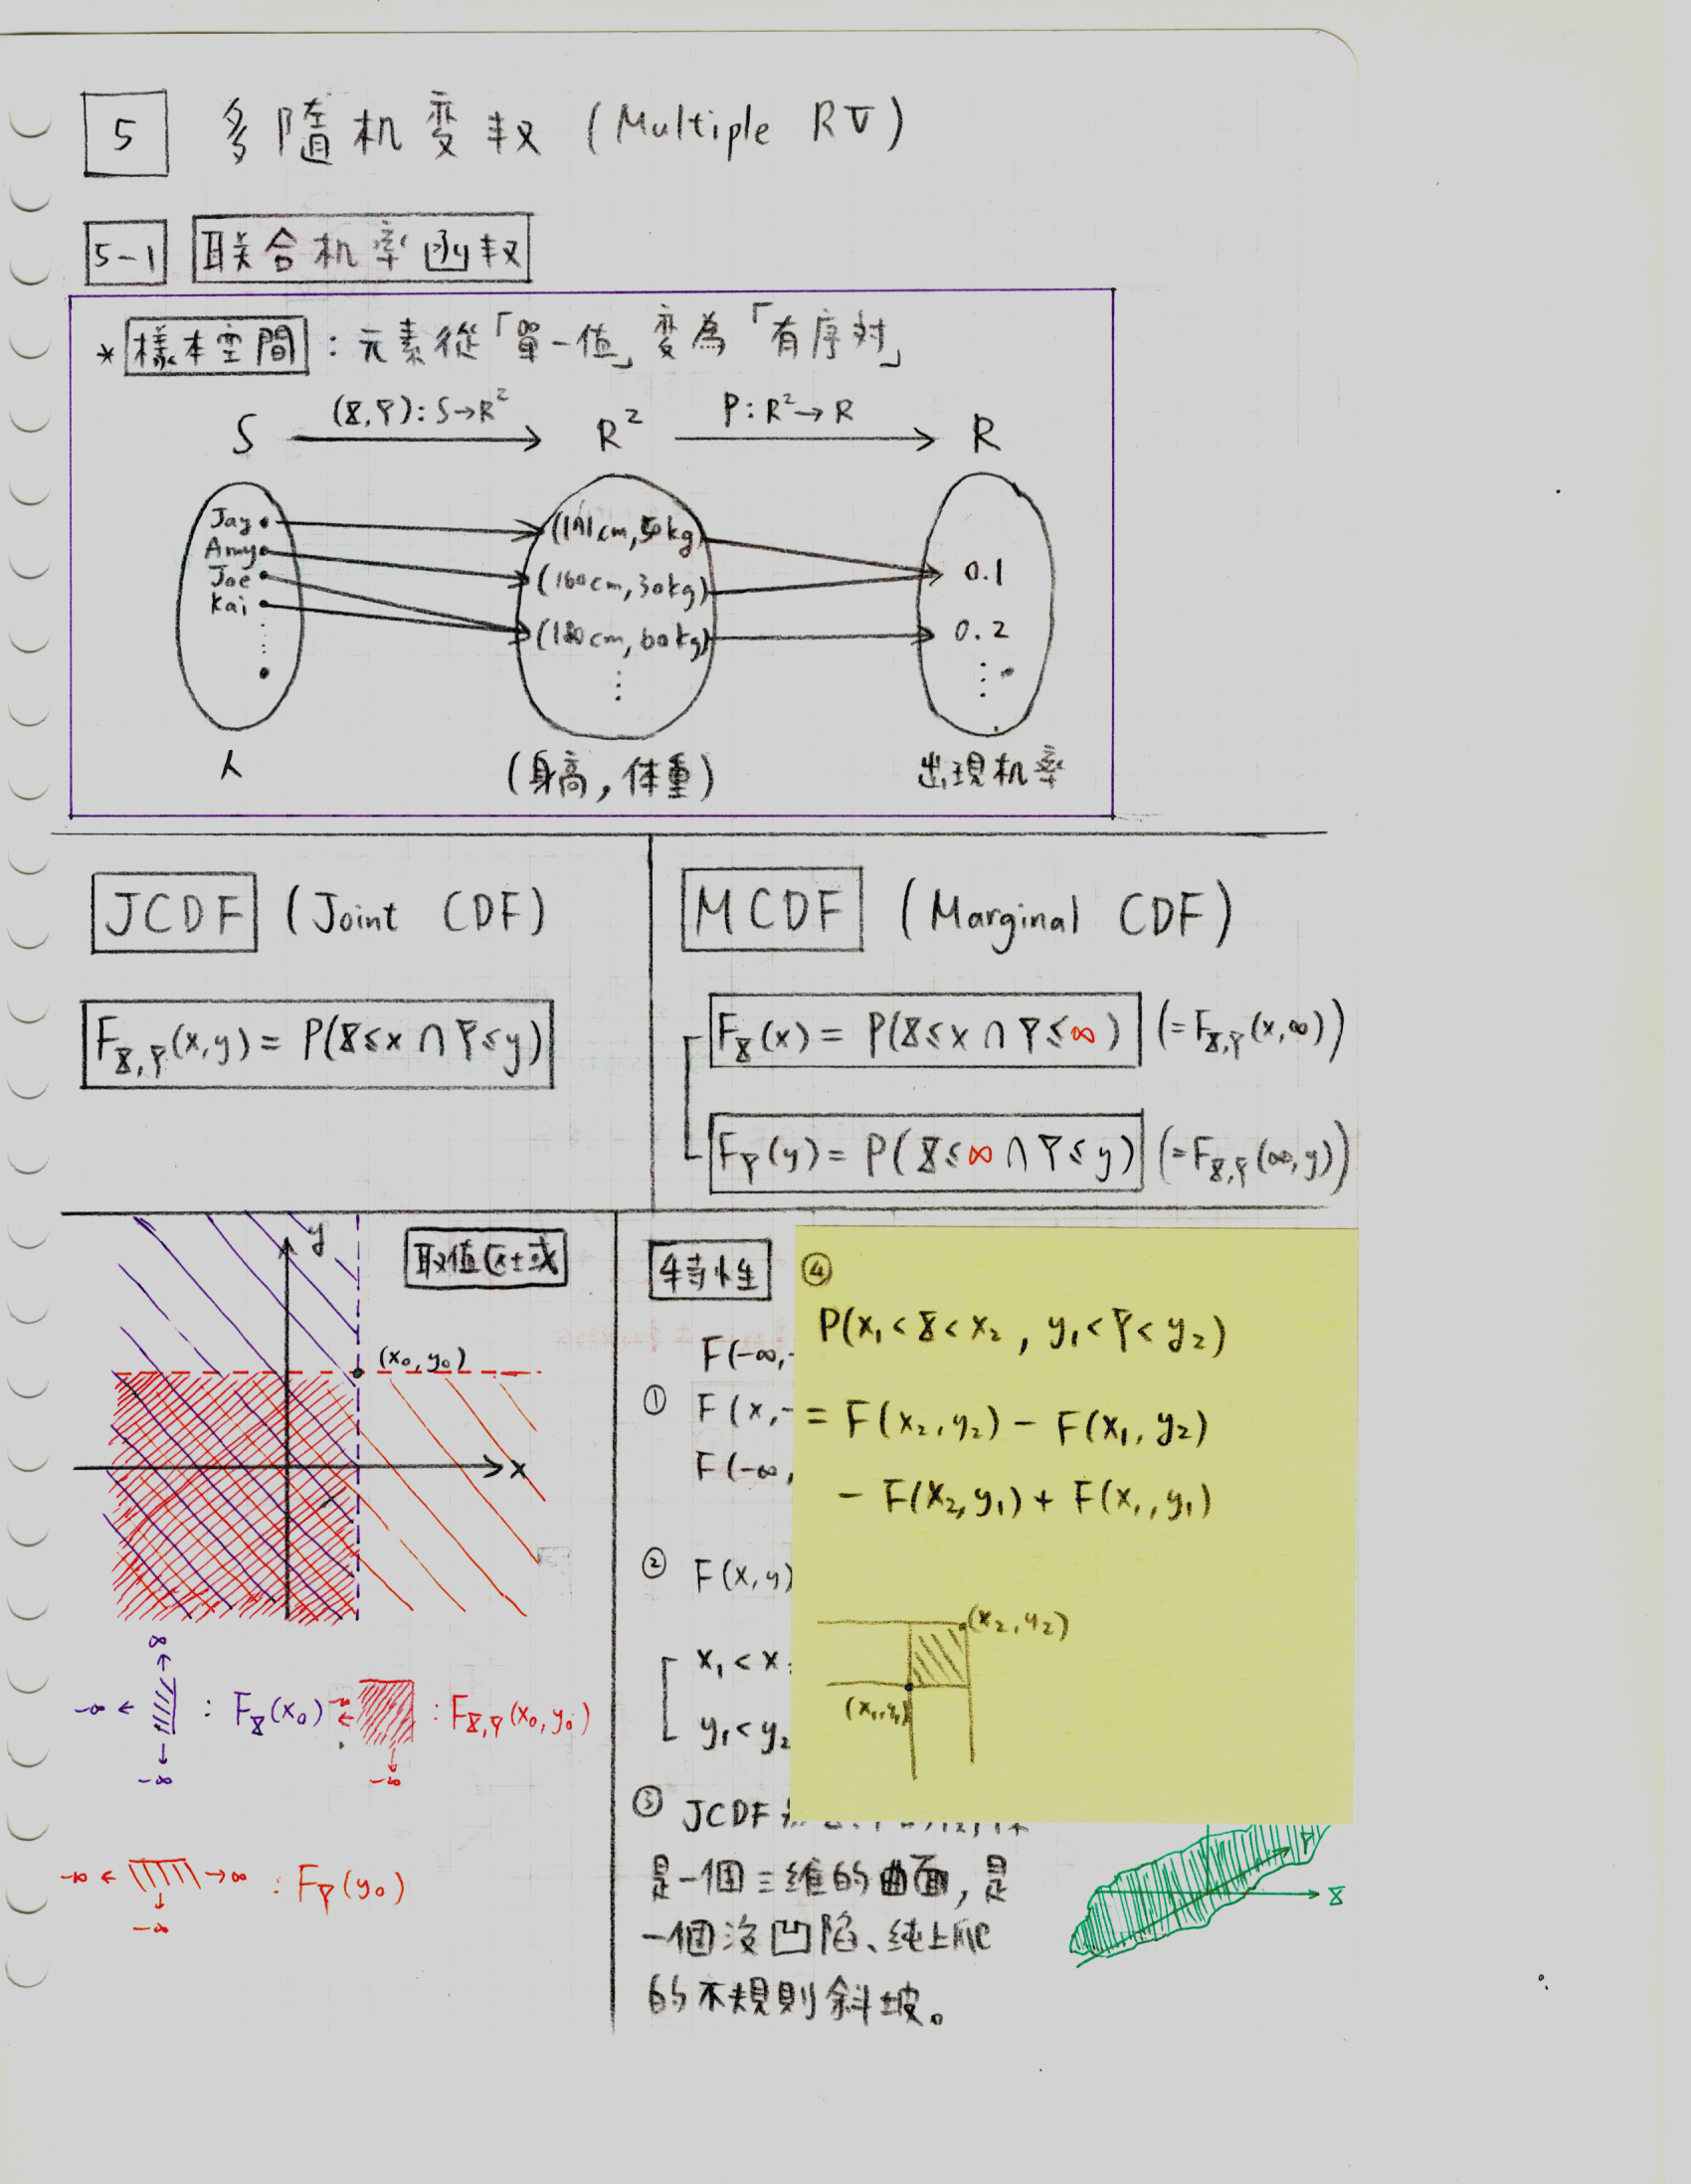 5 多隨机变数 (Multiple RV)
5-1 联合机率函数
*樣本空間：元素從「單一值」变為「有序対」
S (X,Y): S→R² R² P: R²→R R
Jay (191cm, 50kg)
Amy (160cm, 30kg) 0.1
Joe
Kai (180cm, 60kg) 0.2
人 (身高, 体重) 出現机率
JCDF (Joint CDF)
F_{X,Y}(x,y) = P(X≤x ∩ Y≤y)
MCDF (Marginal CDF)
F_X(x) = P(X≤x ∩ Y≤∞) (=F_{X,Y}(x,∞))
F_Y(y) = P(X≤∞ ∩ Y≤y) (=F_{X,Y}(∞,y))
取值区域
y
(x₀, y₀)
x
∞
-∞ ← : F_X(x₀)
-∞
-∞ ← : F_{X,Y}(x₀,y₀)
-∞
-∞ ← → ∞ : F_Y(y₀)
-∞
特性
F(-∞,-
① F(x,-
F(-∞,
② F(x,y)
x₁ < x
y₁ < y₂
③ JCDF
是一個三維的曲面，是
一個沒凹陷、純上爬
的不規則斜坡。
④
P(x₁ < X < x₂, y₁ < Y < y₂)
= F(x₂,y₂) - F(x₁,y₂)
- F(x₂,y₁) + F(x₁,y₁)
(x₂,y₂)
(x₁,y₁)
Y
X